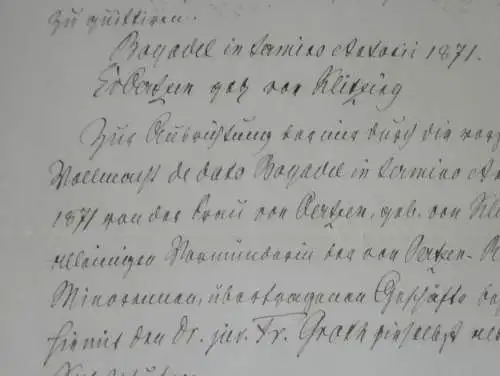 zu quittiren.
Bogadel in termino Antonii 1871.
EvOertzen geb von Klitzing
Zur Ausrichtung der mir durch die
Vollmacht de dato Bogadel in termino
1871 von der Frau von Oertzen, geb. von
alleinigen Vormünderin der von Oertzen-
Minorennen, übertragenen Geschäfte
hiemit den Dr. jur. Fr. Groth hieselbst